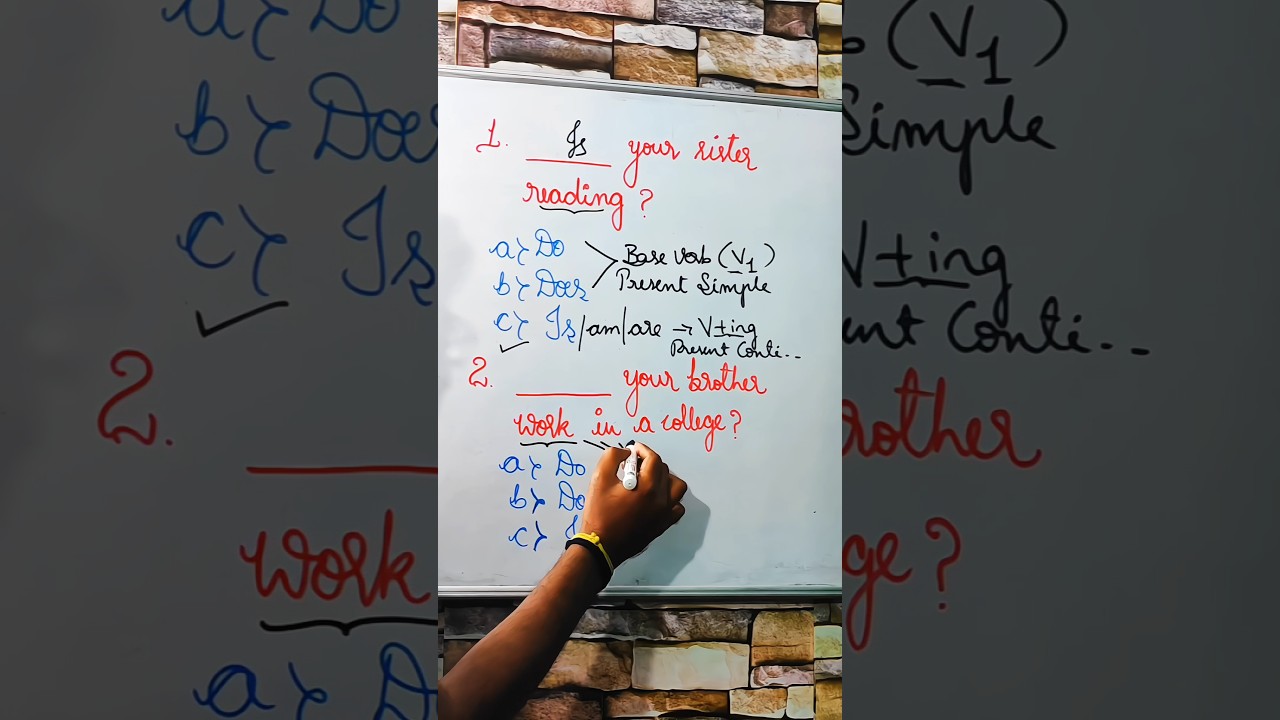 1. Is your sister
reading ?
a> Do
b> Does
Base verb (V1)
Present Simple
c> Is/am/are → V+ing
Present Conti...
2. ______ your brother
work in a college ?
a> Do
b> Do
c>